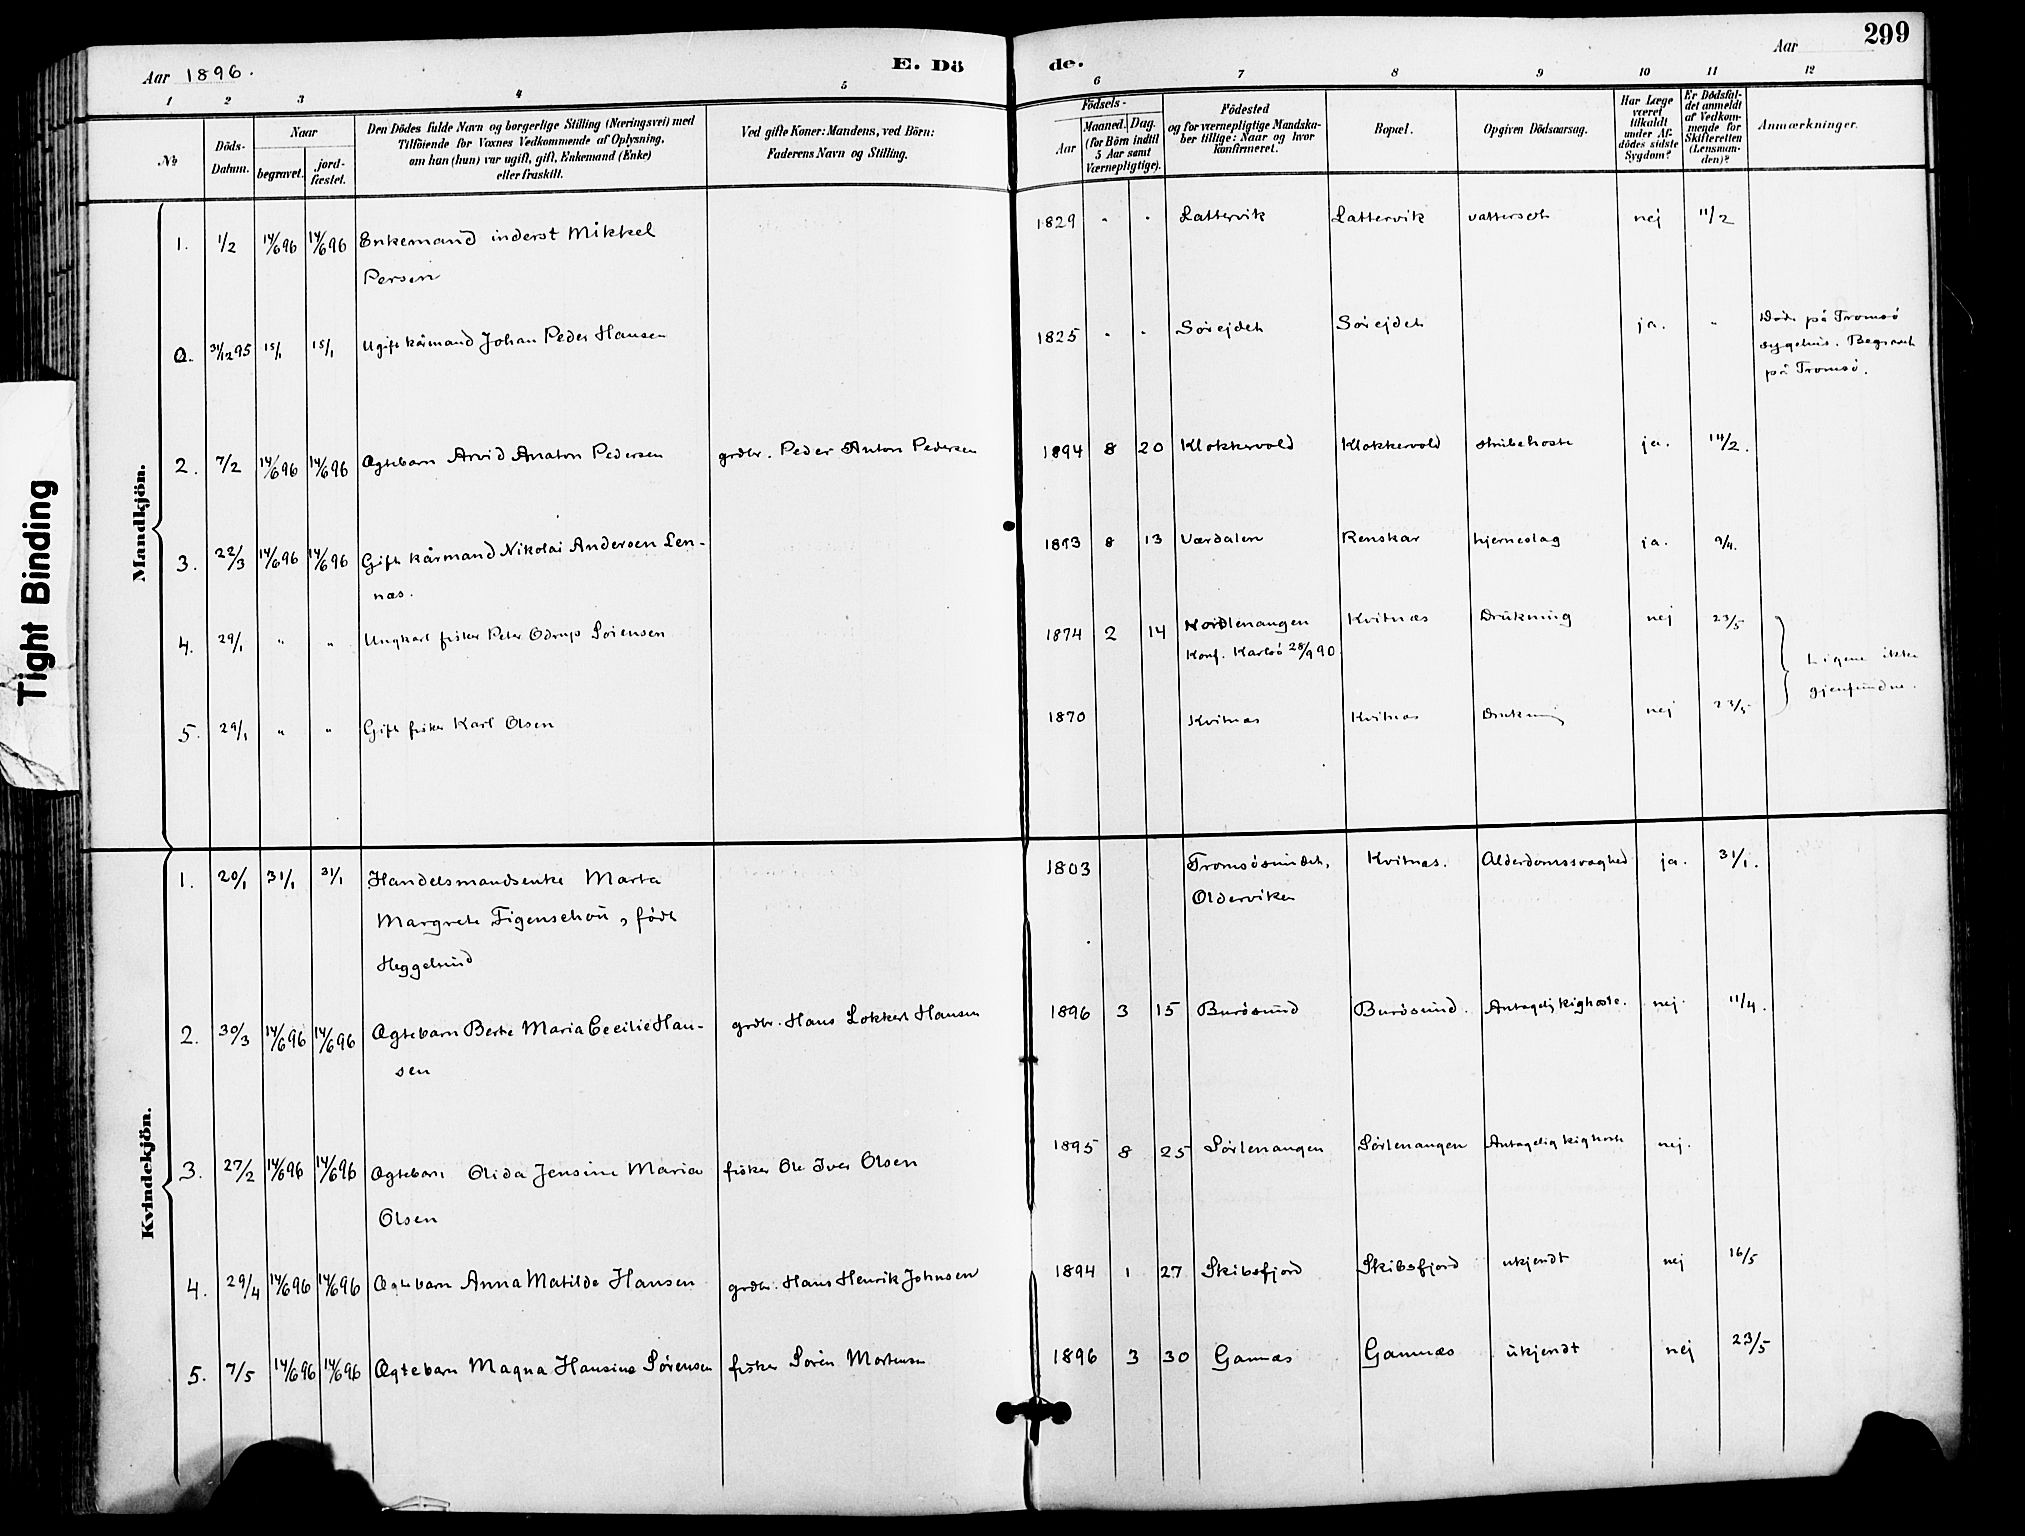 299
Aar 1896.
E. Dö de.
Aar
1 2 3 4 5 6 7 8 9 10 11 12
No
Döds-
Datum.
Naar
begravet.
jord-
fæstet.
Den Dödes fulde Navn og borgerlige Stilling (Næringsvei) med
Tilföiende for Voxnes Vedkommende af Oplysning,
om han (hun) var ugift, gift, Enkemand (Enke)
eller fraskilt.
Ved gifte Koner: Mandens, ved Börn:
Faderens Navn og Stilling.
Födsels-
Aar
Maaned. Dag.
(for Börn indtil
5 Aar samt
Værnepligtige).
Födested
og for værnepligtige Mandska-
ber tillige: Naar og hvor
konfirmeret.
Bopæl.
Opgiven Dödsaarsag.
Har Læge
været
tilkaldt
under Af-
dödes sidste
Sygdom?
Er Dödsfal-
det anmeldt
af Vedkom-
mende for
Skifteretten
(Lensman-
den)?
Anmærkninger.
Tight Binding
Mandkjön.
1. 1/2 14/6 96 14/6 96 Enkemand inderst Mikkel
Persen
1829 " " Lattervik Lattervik vattersot nej 11/2
0. 31/12 95 15/1 15/1 Ugift kårmand Johan Peder Hansen
1825 " " Sørejdet Sørejdet ja. "
Døde på Tromsø
sygehus. Begravet
på Tromsø.
2. 7/2 14/6 96 14/6 96 Ægtebarn Arvid Anaton Pedersen grdbr. Peder Anton Pedersen
1894 8 20 Klokkervold Klokkervold strubehoste ja. 14/2.
3. 22/3 14/6 96 14/6 96 Gift kårmand Nikolai Andersen Len-
næs.
8 13 Værdalen Renskar hjerneslag ja. 9/4.
4. 29/1 " " Ungkarl fisker Peter Odrup Sørensen
1874 2 14 Nordlenangen Kvitnæs Drukning nej 23/5
Konf. Karlsø 28/9 90.
Ligene ikke
gjenfundne.
5. 29/1 " " Gift fisker Karl Olsen
1870 Kvitnæs Kvitnæs Drukning nej 23/5
Kvindekjön.
1. 20/1 31/1 31/1 Handelsmandsenke Marta
Margrete Figenschou, født
Heggelund
1803 Tromsøsundet, Kvitnæs. Alderdomssvaghed ja. 31/1.
Olderviken
2. 30/3 14/6 96 14/6 96 Ægtebarn Berte Maria Cecilie Han-
sen
grdbr. Hans Lokkert Hansen
1896 3 15 Burøsund Burøsund. Antagelig kighoste. nej. 11/4.
3. 27/2 14/6 96 14/6 96 Ægtebarn Olida Jensine Maria
Olsen
fisker Ole Iver Olsen
1895 8 25 Sørlenangen Sørlenangen Antagelig kighoste nej.
4. 29/4 14/6 96 14/6 96 Ægtebarn Anna Matilde Hansen grdbr. Hans Henrik Johnsen
1894 1 27 Skibsfjord Skibsfjord ukjendt nej 16/5
5. 7/5 14/6 96 14/6 96 Ægtebarn Magna Hansine Sørensen fisker Søren Mortensen
1896 3 30 Gamnæs Gamnæs ukjendt nej 23/5